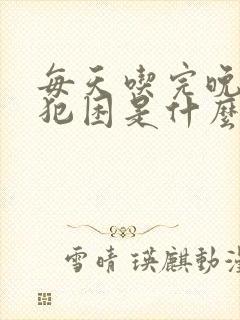 每天喫完晚
犯困是什麼
雪晴 瑛麒動漫